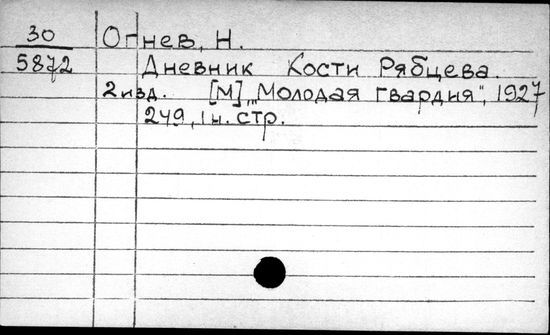 30
5872
Огнев, Н.
Дневник Кости Рябцева.
2 изд. [М] „Молодая гвардия", 1927
249, 1 н. стр.